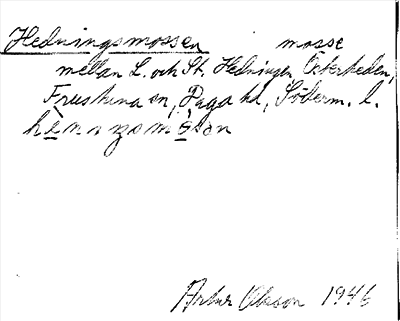 Hedningsmossen mosse
mellan L. och St. Hedningen, Österheden,
Frustuna sn, Daga hd, Söderm. l.
Artur Olsson 1946